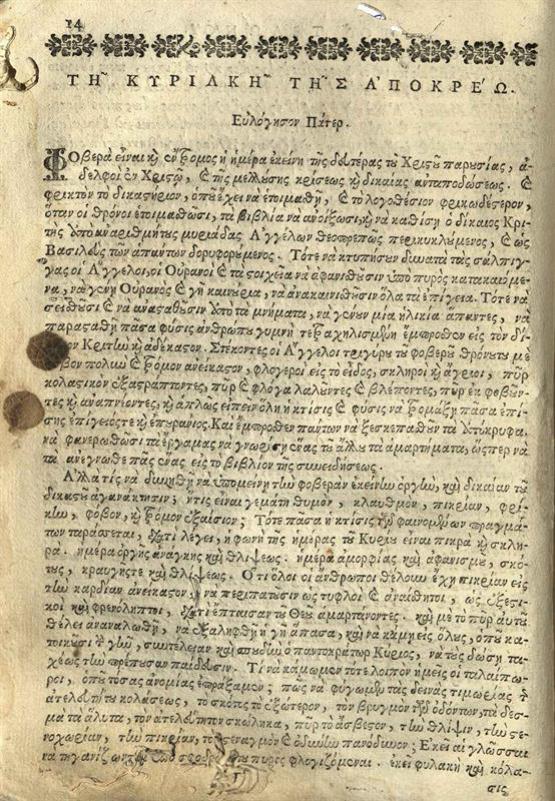 14
ΤΗ͂ ΚΥΡΙΑΚΗ͂ ΤΗ͂Σ ἈΠΟΚΡΕΏ.
Εὐλόγησον Πάτερ.
ΦΟβερὰ εἶναι κὴ ἔντρομος ἡ ἡμέρα ἐκείνη τῆς δευτέρας τοῦ Χριστοῦ παρουσίας, ἀ-
δελφοὶ ἐν Χριστῷ, καὶ τῆς μελλούσης κρίσεως κὴ δικαίας ἀνταποδώσεως. καὶ
φρικτὸν τὸ δικαστήριον, ὁποῦ ἔχει νὰ ἑτοιμασθῇ, καὶ τὸ λογοθέσιον φρικωδέστερον,
ὅταν οἱ θρόνοι ἑτοιμασθῶσι, τὰ βιβλία νὰ ἀνοίξωσι, κὴ νὰ καθίσῃ ὁ δίκαιος Κρι-
τὴς ὑπὸ ἀναριθμήτους μυριάδας Ἀγγέλων θεοπρεπῶς περικυκλωμένος, καὶ ὡς
Βασιλεὺς τῶν ἁπάντων δορυφορούμενος. Τότε νὰ κτυπήσουν δυνατὰ ταῖς σάλπιγ-
γας οἱ Ἄγγελοι, οἱ Οὐρανοὶ καὶ τὰ στοιχεῖα νὰ ἀφανισθοῦσιν ὑπὸ πυρὸς κατακαιόμε-
να, νὰ γένῃ Οὐρανὸς καὶ γῆ καινούρια, νὰ ἀνακαινισθοῦσιν ὅλα τὰ ἐπίγεια. Τότε νὰ
σεισθοῦσι καὶ νὰ ἀναστηθοῦσιν ὑπὸ τὰ μνήματα, νὰ γένουν μία ἡλικία ἅπαντες, νὰ
παρασταθῇ πᾶσα φύσις ἀνθρώπου γυμνὴ τετραχηλισμένη ἔμπροσθεν εἰς τὸν δί-
Κριτὴν κὴ ἀδέκαστον. Στέκοντες οἱ Ἄγγελοι τριγύρου τοῦ φοβεροῦ θρόνου του μὲ
φόβον πολὺν καὶ τρόμον ἀνείκαστον, φλογεροὶ εἰς τὸ εἶδος, σκληροὶ κὴ ἄγριοι, πῦρ
κολαστικὸν ἐξαστράπτοντες, πῦρ καὶ φλόγα λαλοῦντες καὶ βλέποντες, πῦρ ἐκφοβοῦν-
τες κὴ ἀναπνέοντες, κὴ ἁπλῶς εἰπεῖν ὅλη ἡ κτίσις καὶ φύσις νὰ τρομάξῃ πᾶσα ἐπί-
σης ἐπίγειός τε κὴ ἐπουράνιος. Καὶ ἔμπροσθεν πάντων νὰ ξεσκεπασθοῦν τὰ ὑπόκρυφα,
νὰ φανερωθῶσι τὰ ἔργα μας νὰ γνωρίσῃ ἕνας τοῦ ἄλλου τὰ ἁμαρτήματα, ὥσπερ νὰ
τὰ ἀνέγνωθε πᾶς ἕνας εἰς τὸ βιβλίον τῆς συνειδήσεως.
Ἀλλὰ τίς νὰ δυνηθῇ νὰ ὑπομείνῃ τὴν φοβερὰν ἐκείνην ὀργὴν, καὶ δικαίαν τοῦ
δικαστοῦ ἀγανάκτησιν; ἥτις εἶναι γεμάτη θυμὸν, κλαυθμὸν, πικρίαν, φρί-
κην, φόβον, κὴ τρόμον ἐξαίσιον; Τότε πᾶσα ἡ κτίσις τῶν φαινομένων πραγμά-
των ταράσσεται, διατὶ λέγει, ἡ φωνὴ τῆς ἡμέρας τοῦ Κυρίου εἶναι πικρὰ κὴ σκλη-
ρά. ἡμέρα ὀργῆς ἀνάγκης καὶ θλίψεως. ἡμέρα ἀμορφίας καὶ ἀφανισμοῦ, σκό-
τους, κραυγῆς τε καὶ θλίψεως. Ὅτι ὅλοι οἱ ἄνθρωποι θέλουν ἔχῃ πικρίαν εἰς
τὴν καρδίαν ἀνείκαστον, νὰ περιπατοῦσιν ὡς τυφλοὶ καὶ ἀναίσθητοι, ὡς ἐξεστι-
κοὶ καὶ φρενόληπτοι, διατὶ ἔπταισαν τοῦ Θεοῦ ἁμαρτάνοντες. καὶ μὲ τὸ πῦρ αὐτοῦ
θέλει ἀναναλωθῇ, νὰ ἐξαλειφθῇ ἡ γῆ ἅπασα, καὶ νὰ κάμῃ εἰς ὅλους, ὁποῦ κα-
τοικοῦσι τὴν γῆν, συντέλειαν καὶ σπουδὴν ὁ παντοκράτωρ Κύριος, νὰ τοὺς δώσῃ τα-
χέως τὴν πρέπουσαν παίδευσιν. Τί νὰ κάμωμεν τότε λοιπὸν ἡμεῖς οἱ ταλαίπω-
ροι, ὁποῦ τόσας ἀνομίας ἐπράξαμεν; πῶς νὰ φύγωμεν τὰς δεινὰς τιμωρίας τῆς
ἀτελευτήτου κολάσεως, τὸ σκότος τὸ ἐξώτερον, τὸν βρυγμὸν τῶν ὀδόντων, τὰ δεσ-
μὰ τὰ ἄλυτα, τὸν ἀτελεύτητον σκώληκα, πῦρ τὸ ἄσβεστον, τὴν θλῖψιν, τὴν στε-
νοχωρίαν, τὴν πικρίαν, τὸν στεναγμὸν καὶ ὀδύνην πανόδυνον; Ἐκεῖ αἱ γλῶσσαι
νὰ τηγανίζωνται πυρὸς φλογιζόμεναι. ἐκεῖ φυλακὴ καὶ κόλα-
σις